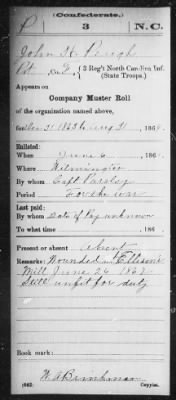 (Confederate.)
P 3 N.C.
John H. Pugh
Pvt, Co. I, 3 Reg't North Carolina Inf.
(State Troops.)
Appears on
Company Muster Roll
of the organization named above,
for Dec 31 1863 to Aug 31, 1864.
Enlisted:
When June 6, 186
Where Wilmington
By whom Capt. Parsley
Period For the war
Last paid:
By whom Date of Pay unknown
To what time , 186
Present or absent Absent
Remarks: Wounded Ellison's
Mill June 26 1862
Still unfit for duty
Book mark:
(642) Copyist.